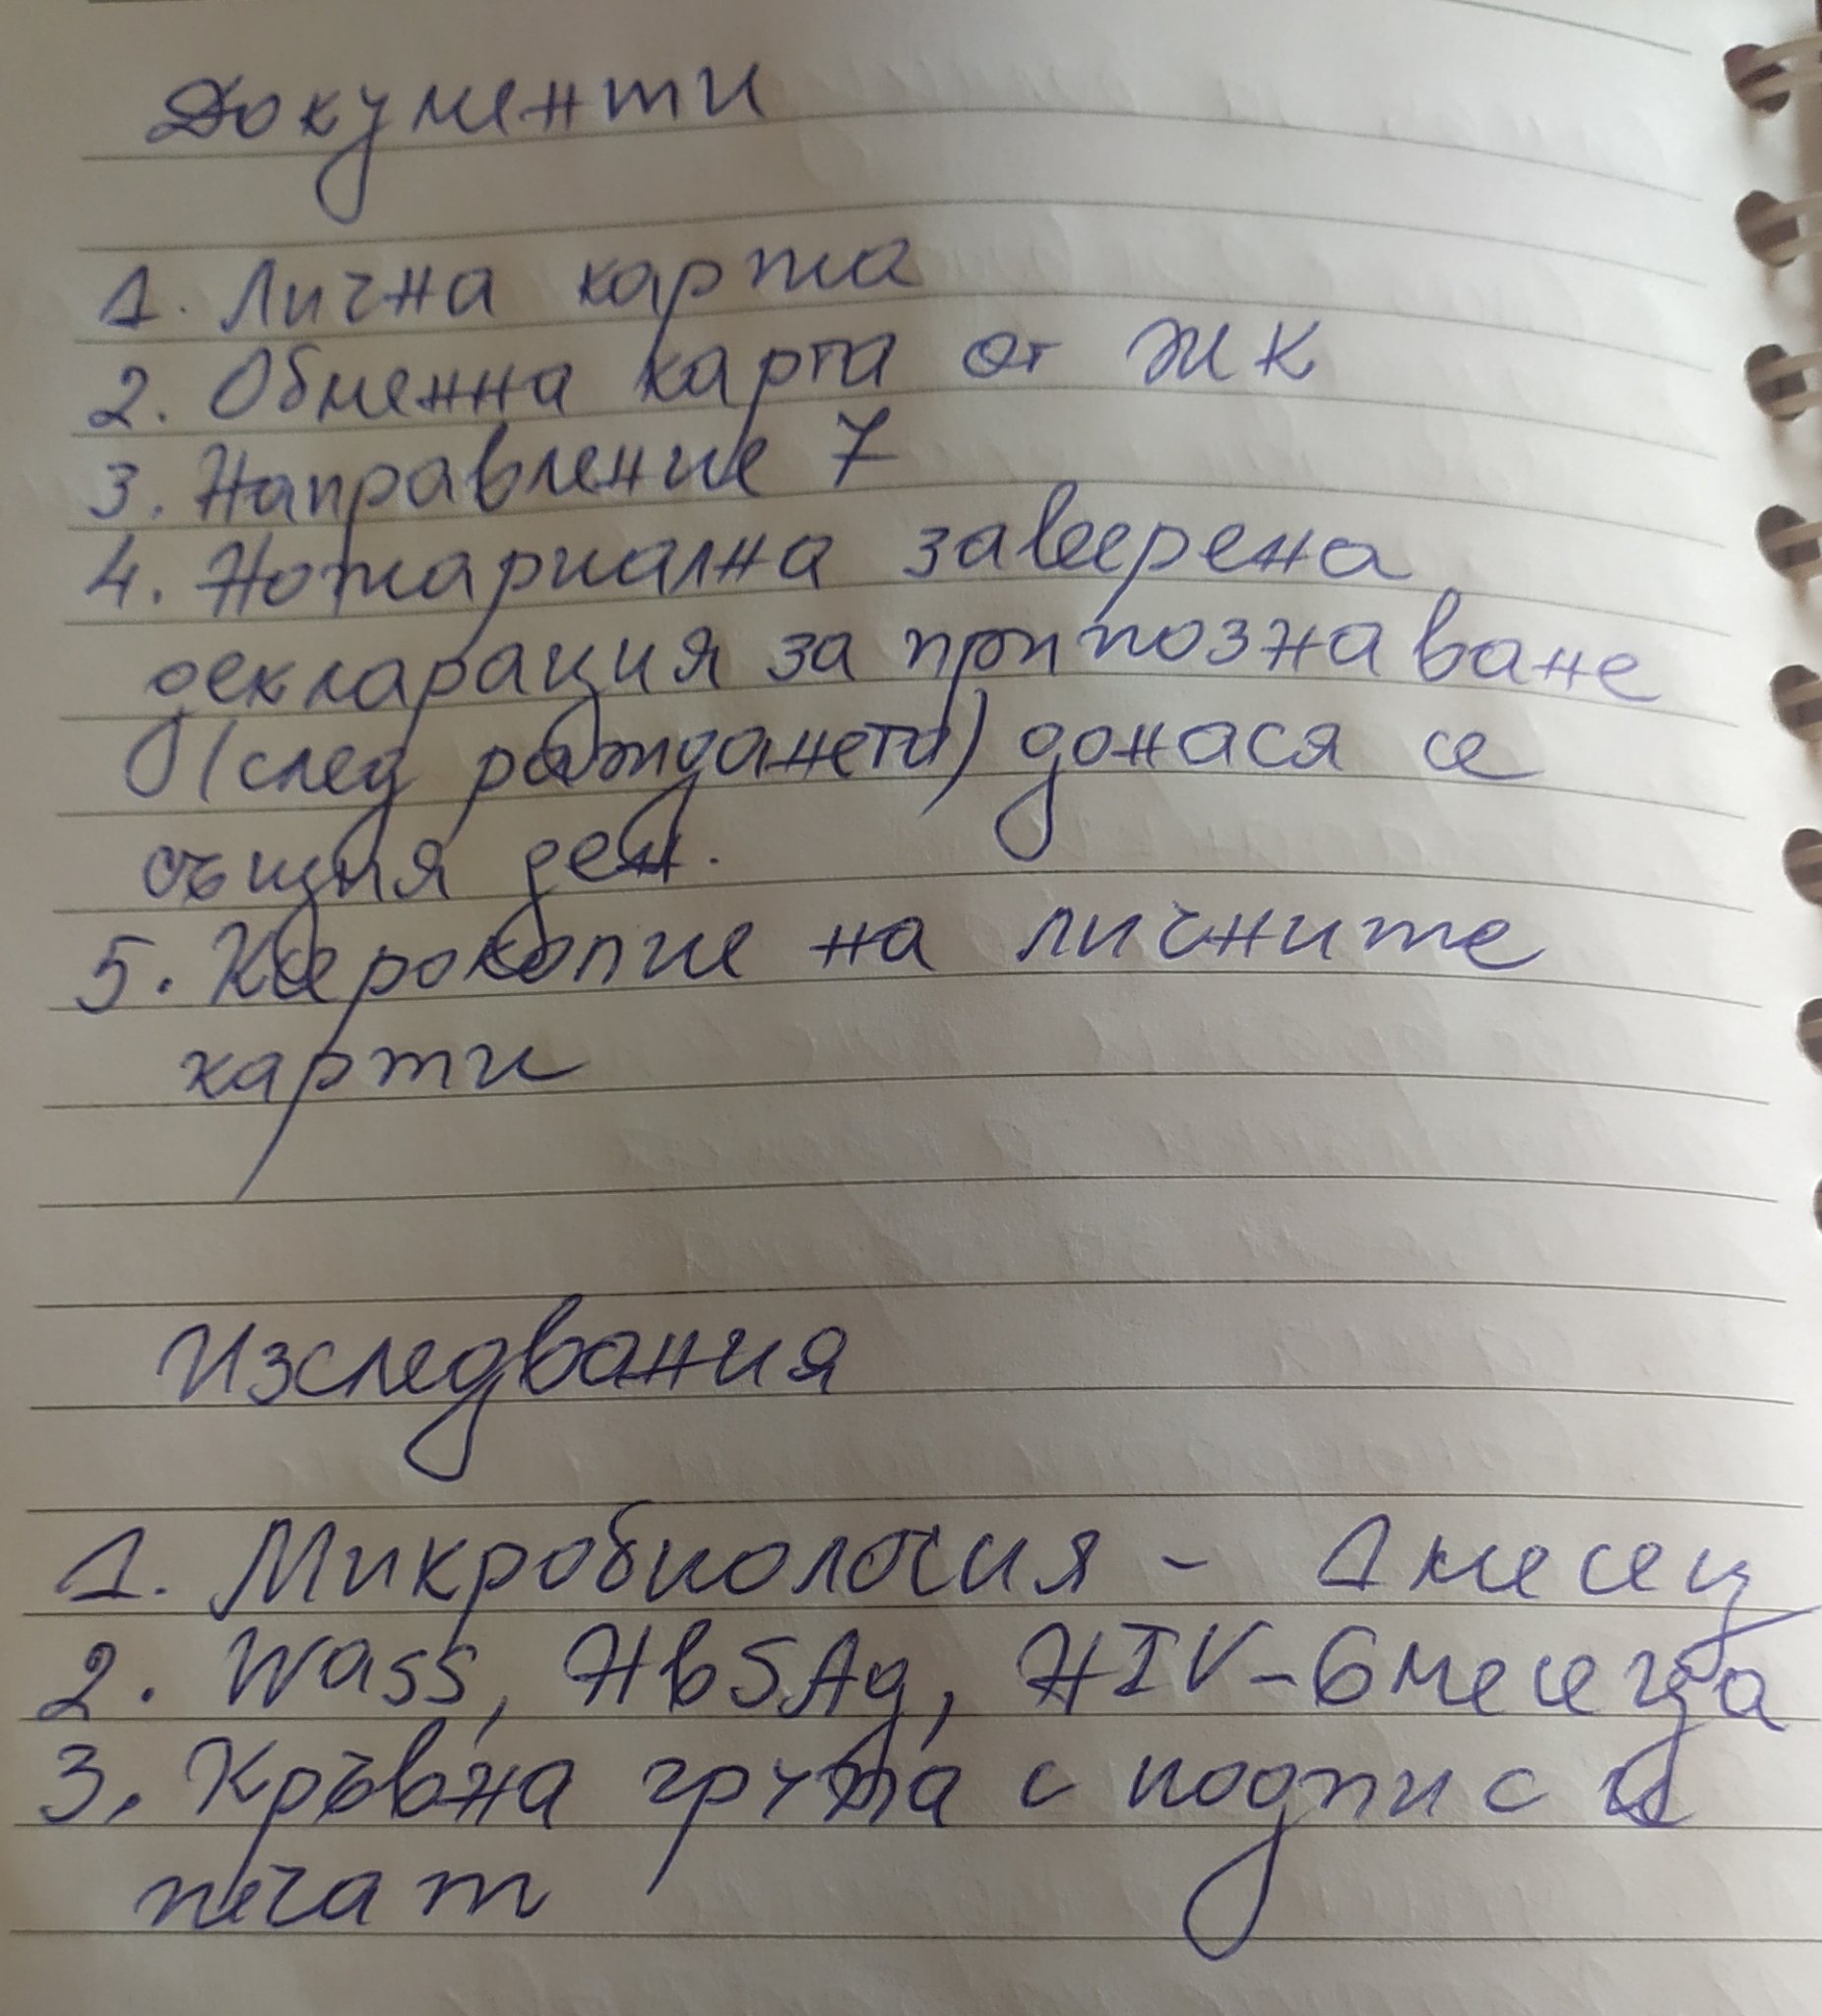 Документи
1. Лична карта
2. Обменна карта от ЖК
3. Направление 7
4. Нотариална заверена
декларация за припознаване
(след раждането) донася се
същия ден.
5. Ксерокопие на личните
карти
Изследвания
1. Микробиология - 1 месец
2. Wass, HbSAg, HIV - 6 месеца
3. Кръвна група с подпис и
печат